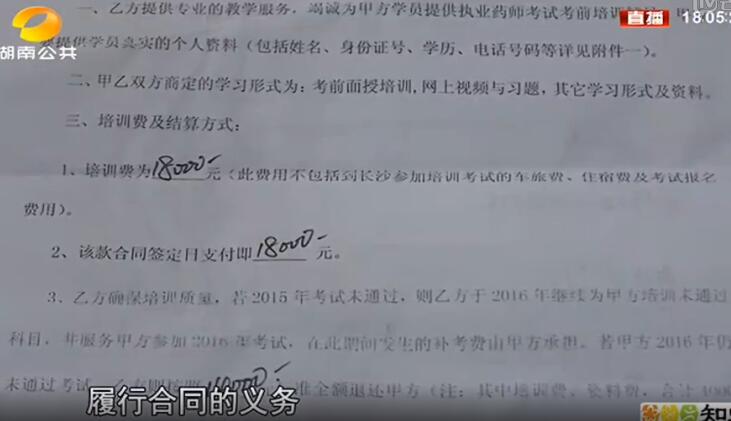 直播 18:05
湖南公共
一、乙方提供专业的教学服务，竭诚为甲方学员提供执业药师考试考前培训
提供学员真实的个人资料（包括姓名、身份证号、学历、电话号码等详见附件一）。
二、甲乙双方商定的学习形式为：考前面授培训，网上视频与习题，其它学习形式及资料。
三、培训费及结算方式：
1、培训费为18000-元（此费用不包括到长沙参加培训考试的车旅费、住宿费及考试报名
费用）。
2、该款合同签定日支付即18000-元。
3、乙方确保培训质量，若2015年考试未通过，则乙方于2016年继续为甲方培训未通过
科目，并服务甲方参加2016年考试，在此期间发生的补考费由甲方承担。若甲方2016年仍
未通过考试，乙方即按照 准全额退还甲方（注：其中培训费、资料费，合计
履行合同的义务